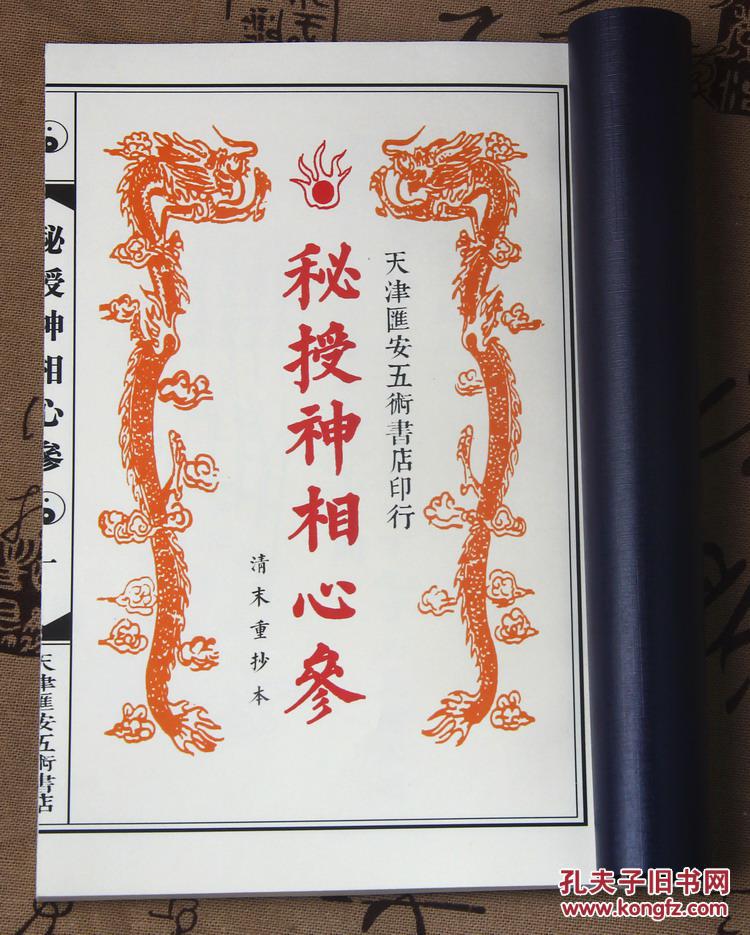 天津匯安五術書店印行
秘授神相心參
清末重抄本
秘授神相心參
一
天津匯安五術書店
孔夫子旧书网
www.kongfz.com